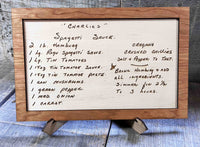 "Charlies"
Spagetti Sauce.
2 lb Hamburg
1 lg Ragu Spagetti Sauce
1 lg Tin Tomatoes
1 Tin Tomato Sauce
1 Tin Tomato Paste
1 can mushrooms
1 green pepper
1 med onion
1 carrot
oregano
crushed chillies
Salt & Pepper to Tast.
Brown Hamburg & add
all ingredients.
Simmer for 2½
to 3 hours.